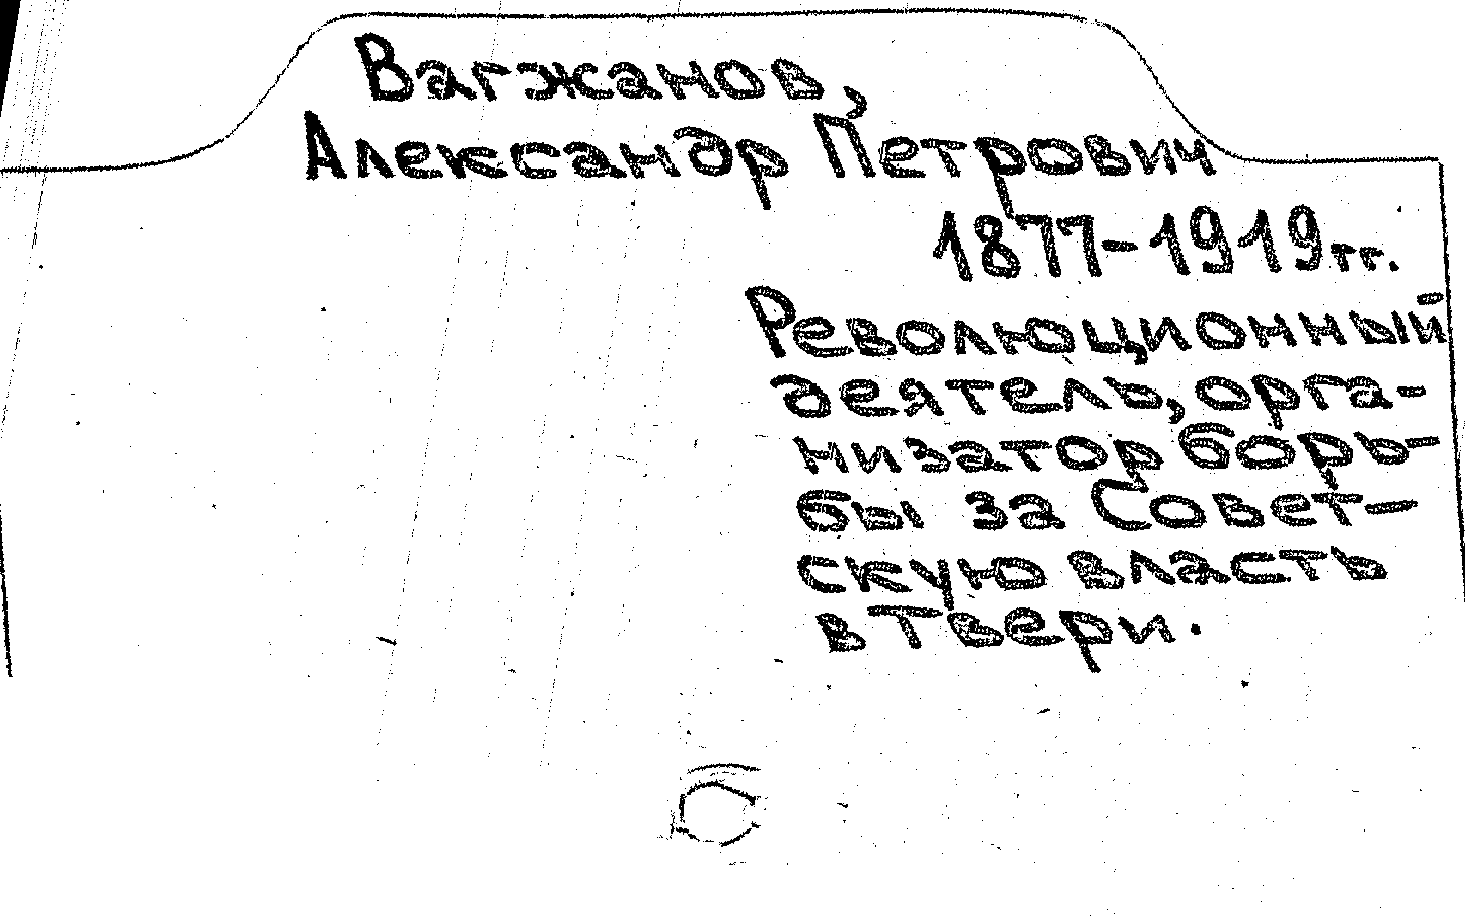 Вагжанов,
Александр Петрович
1877-1919гг.
Революционный
деятель, орга-
низатор борь-
бы за Совет-
скую власть
в Твери.